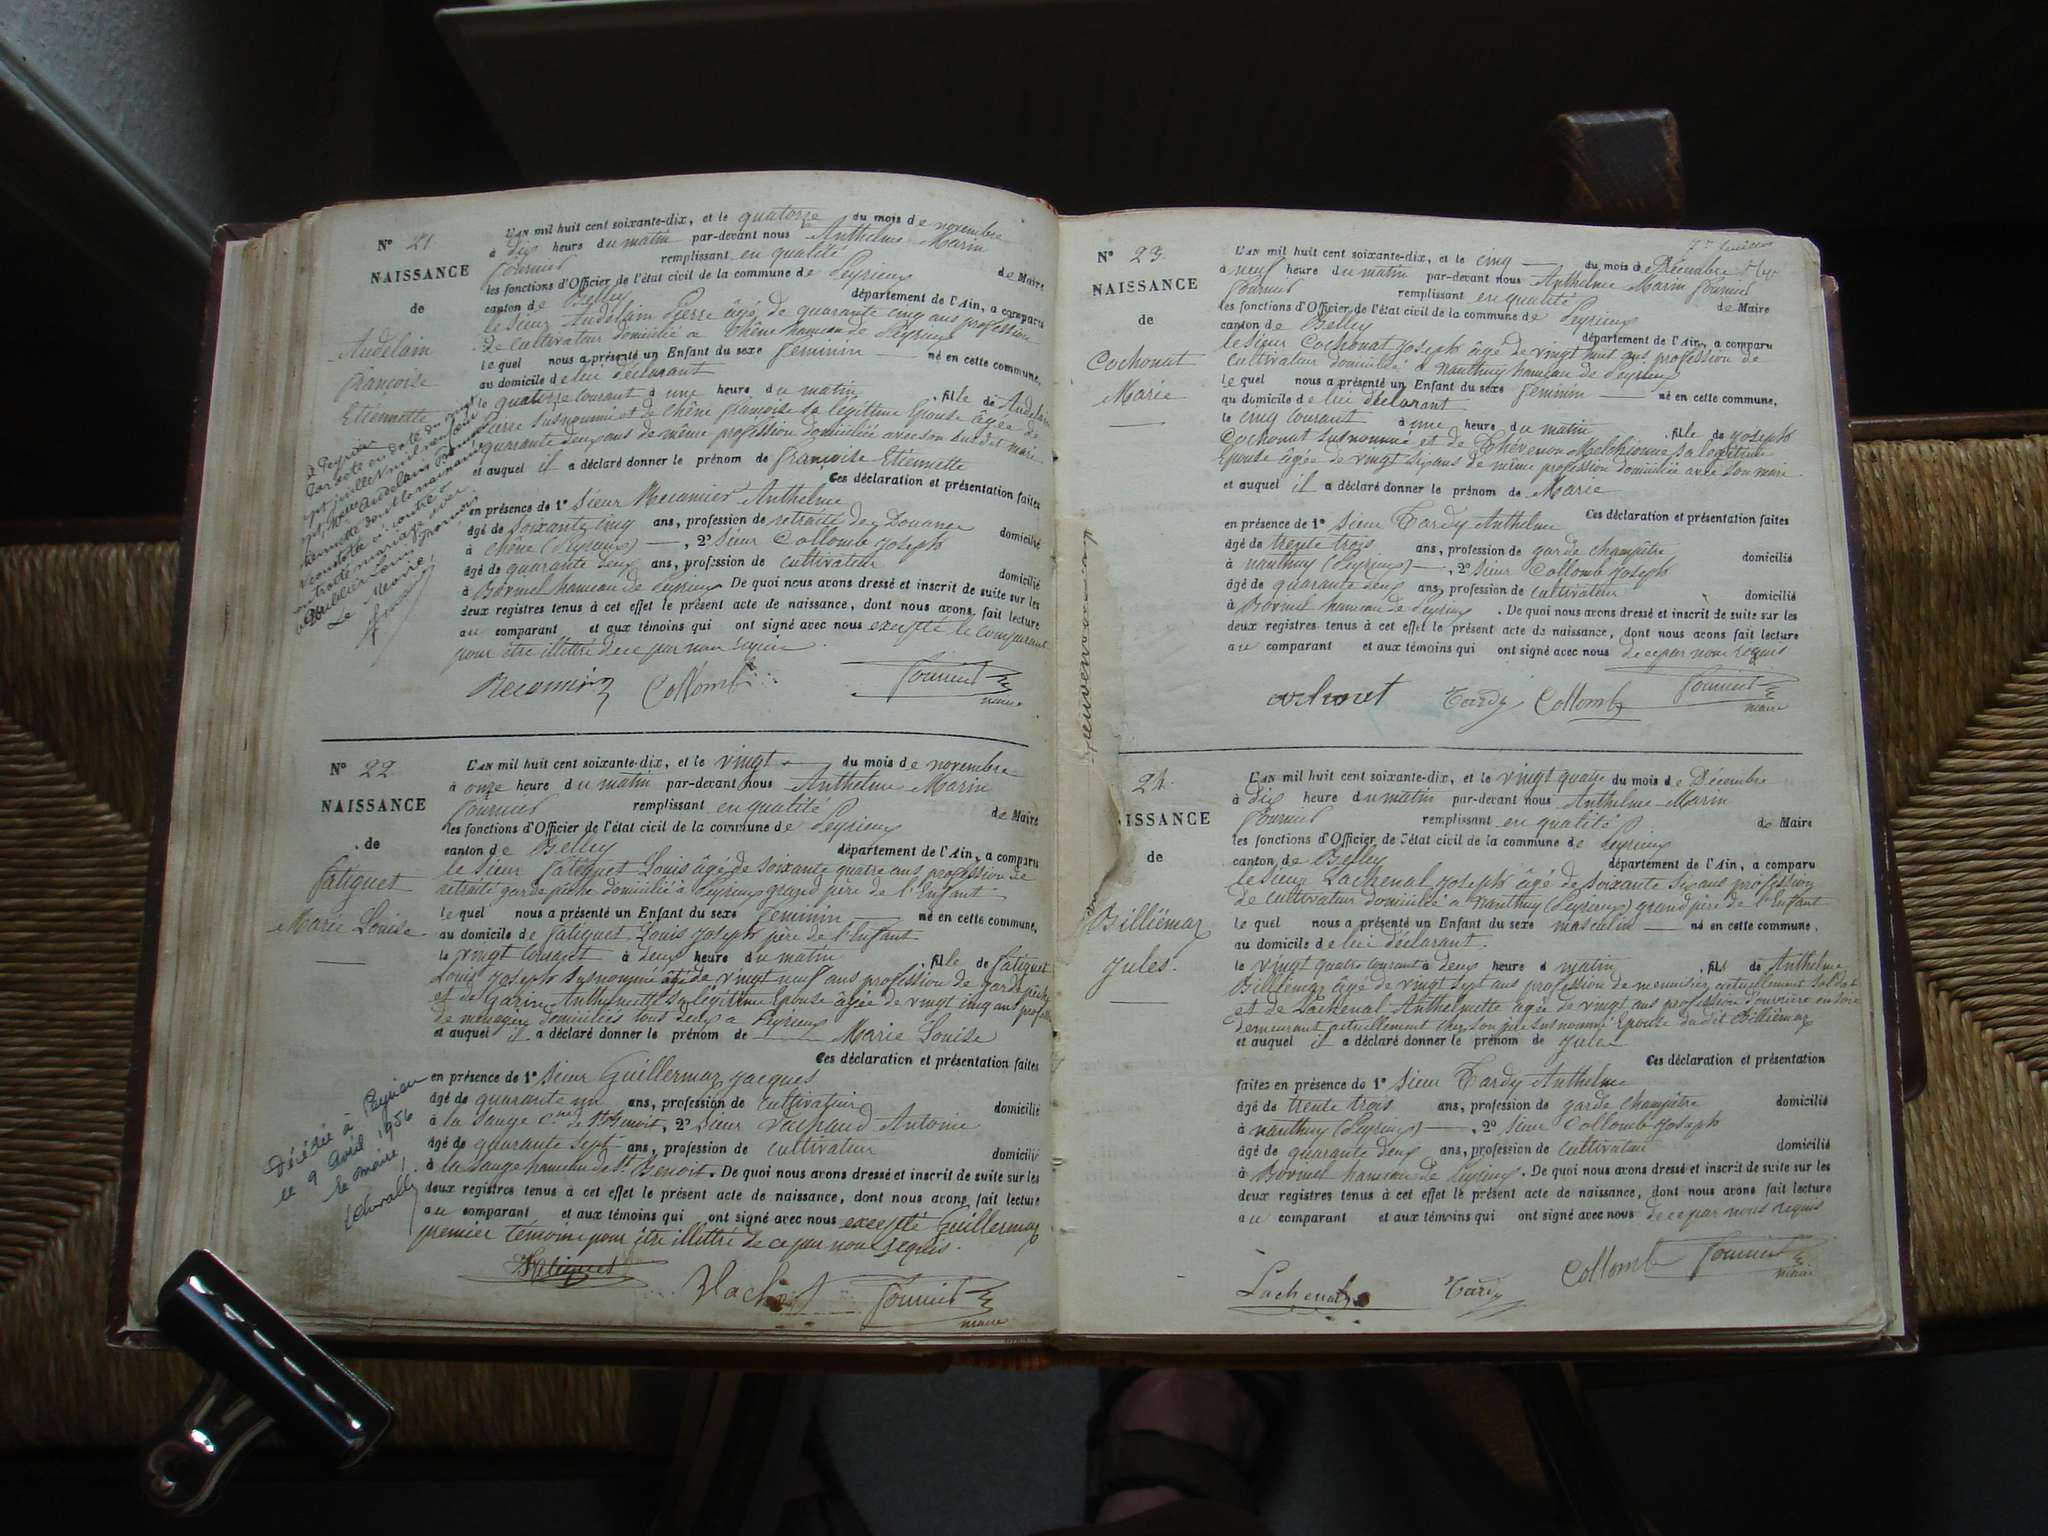 N° 21.
NAISSANCE
de
Audelain
Françoise
Etiennette
L'AN mil huit cent soixante-dix, et le quatorze du mois de novembre
à dix heure du matin par-devant nous Anthelme Marin
Fournier remplissant en qualité de Maire
les fonctions d'Officier de l'état civil de la commune de Peyrieux
canton de Belley département de l'Ain, a comparu
le sieur Audelain Pierre âgé de quarante cinq ans profession
de cultivateur domicilié a Chêne hameau de Peyrieux
lequel nous a présenté un Enfant du sexe feminin né en cette commune,
au domicile de lui déclarant
le quatorze courant à une heure du matin , fille de Audelain
Pierre susnommé et de Chêne françoise sa légitime Epouse âgée de
quarante deux ans de même profession domiciliée avec son susdit mari
et auquel il a déclaré donner le prénom de françoise Etiennette
Ces déclaration et présentation faites
en présence de 1° sieur Recamier Anthelme
âgé de soixante cinq ans, profession de retraité de Douane domicilié
à Chêne (Peyrieux) , 2° sieur Collomb Joseph
âgé de quarante deux ans, profession de cultivateur domicilié
à Bovinel hameau de Peyrieux De quoi nous avons dressé et inscrit de suite sur les
deux registres tenus à cet effet le présent acte de naissance, dont nous avons fait lecture
au comparant et aux témoins qui ont signé avec nous excepté le comparant
pour être illettré de ce par nous requis
Collomb Fournier
maire
Le Maire,
N° 22
NAISSANCE
de
Fatiguet
Marie Louise
L'AN mil huit cent soixante-dix, et le vingt du mois de novembre
à onze heure du matin par-devant nous Anthelme Marin
Fournier remplissant en qualité de Maire
les fonctions d'Officier de l'état civil de la commune de Peyrieux
canton de Belley département de l'Ain, a comparu
le sieur Fatiguet Louis âgé de soixante quatre ans profession de
retraité garde pêche domicilié à Peyrieux grand père de l'Enfant
lequel nous a présenté un Enfant du sexe feminin né en cette commune,
au domicile de Fatiguet Louis Joseph père de l'Enfant
le vingt courant à deux heure du matin , fille de Fatiguet
Louis Joseph susnommé âgé de vingt neuf ans profession de garde pêche
et de Garin Anthelmette sa légitime Epouse âgée de vingt cinq ans profession
de menagère domiciliés tous deux a Peyrieux
et auquel il a déclaré donner le prénom de Marie Louise
Ces déclaration et présentation faites
en présence de 1° sieur Guillermaz Jacques
âgé de quarante un ans, profession de cultivateur domicilié
à la Sauge Cne de St Benoit, 2° sieur Vachaud Antoine
âgé de quarante sept ans, profession de cultivateur domicilié
à la Sauge hameau de St Benoit. De quoi nous avons dressé et inscrit de suite sur les
deux registres tenus à cet effet le présent acte de naissance, dont nous avons fait lecture
au comparant et aux témoins qui ont signé avec nous excepté Guillermaz
premier témoin pour être illettré de ce par nous requis.
Fatiguet
Fournier
maire
Décédée à Peyrieu
le 9 Avril 1956
Le maire,
N° 23
NAISSANCE
de
Cochonat
Marie
L'AN mil huit cent soixante-dix, et le cinq du mois de Décembre
à neuf heure du matin par-devant nous Anthelme Marin Fournier
Fournier remplissant en qualité de Maire
les fonctions d'Officier de l'état civil de la commune de Peyrieux
canton de Belley département de l'Ain, a comparu
le sieur Cochonat Joseph âgé de vingt huit ans profession de
cultivateur domicilié a nanthuy hameau de Peyrieux
lequel nous a présenté un Enfant du sexe feminin né en cette commune,
au domicile de lui déclarant
le cinq courant à une heure du matin , fille de Joseph
Cochonat susnommé et de Thévenon Melchionne sa légitime
Epouse âgée de vingt six ans de même profession domiciliée avec son mari
et auquel il a déclaré donner le prénom de Marie
Ces déclaration et présentation faites
en présence de 1° sieur Tardy Anthelme
âgé de trente trois ans, profession de garde champêtre domicilié
à nanthuy (Peyrieux) , 2° sieur Collomb Joseph
âgé de quarante deux ans, profession de cultivateur domicilié
à Bovinel hameau de Peyrieux . De quoi nous avons dressé et inscrit de suite sur les
deux registres tenus à cet effet le présent acte de naissance, dont nous avons fait lecture
au comparant et aux témoins qui ont signé avec nous de ce par nous requis
Tardy Collomb Fournier
maire
24.
ISSANCE
de
Billiémaz
Jules.
L'AN mil huit cent soixante-dix, et le vingt quatre du mois de Décembre
à dix heure du matin par-devant nous Anthelme Marin
Fournier remplissant en qualité de Maire
les fonctions d'Officier de l'état civil de la commune de Peyrieux
canton de Belley département de l'Ain, a comparu
le sieur Lachenal Joseph âgé de soixante six ans profession
de cultivateur domicilié a nanthuy (Peyrieux) grand père de l'Enfant
lequel nous a présenté un Enfant du sexe masculin né en cette commune,
au domicile de lui déclarant
le vingt quatre courant à deux heure d matin , fils de Anthelme
Billiémaz âgé de vingt sept ans profession de menuisier actuellement soldat
et de Lachenal Anthelmette âgée de vingt ans profession d'ouvrière en soie
demeurant actuellement chez son père susnommé Epouse du dit Billiémaz
et auquel il a déclaré donner le prénom de Jules
Ces déclaration et présentation
faites en présence de 1° sieur Tardy Anthelme
âgé de trente trois ans, profession de garde champêtre domicilié
à nanthuy (Peyrieux) , 2° sieur Collomb Joseph
âgé de quarante deux ans, profession de cultivateur domicilié
à Bovinel hameau de Peyrieux. De quoi nous avons dressé et inscrit de suite sur les
deux registres tenus à cet effet le présent acte de naissance, dont nous avons fait lecture
au comparant et aux témoins qui ont signé avec nous de ce par nous requis
Lachenal Tardy Collomb Fournier
maire